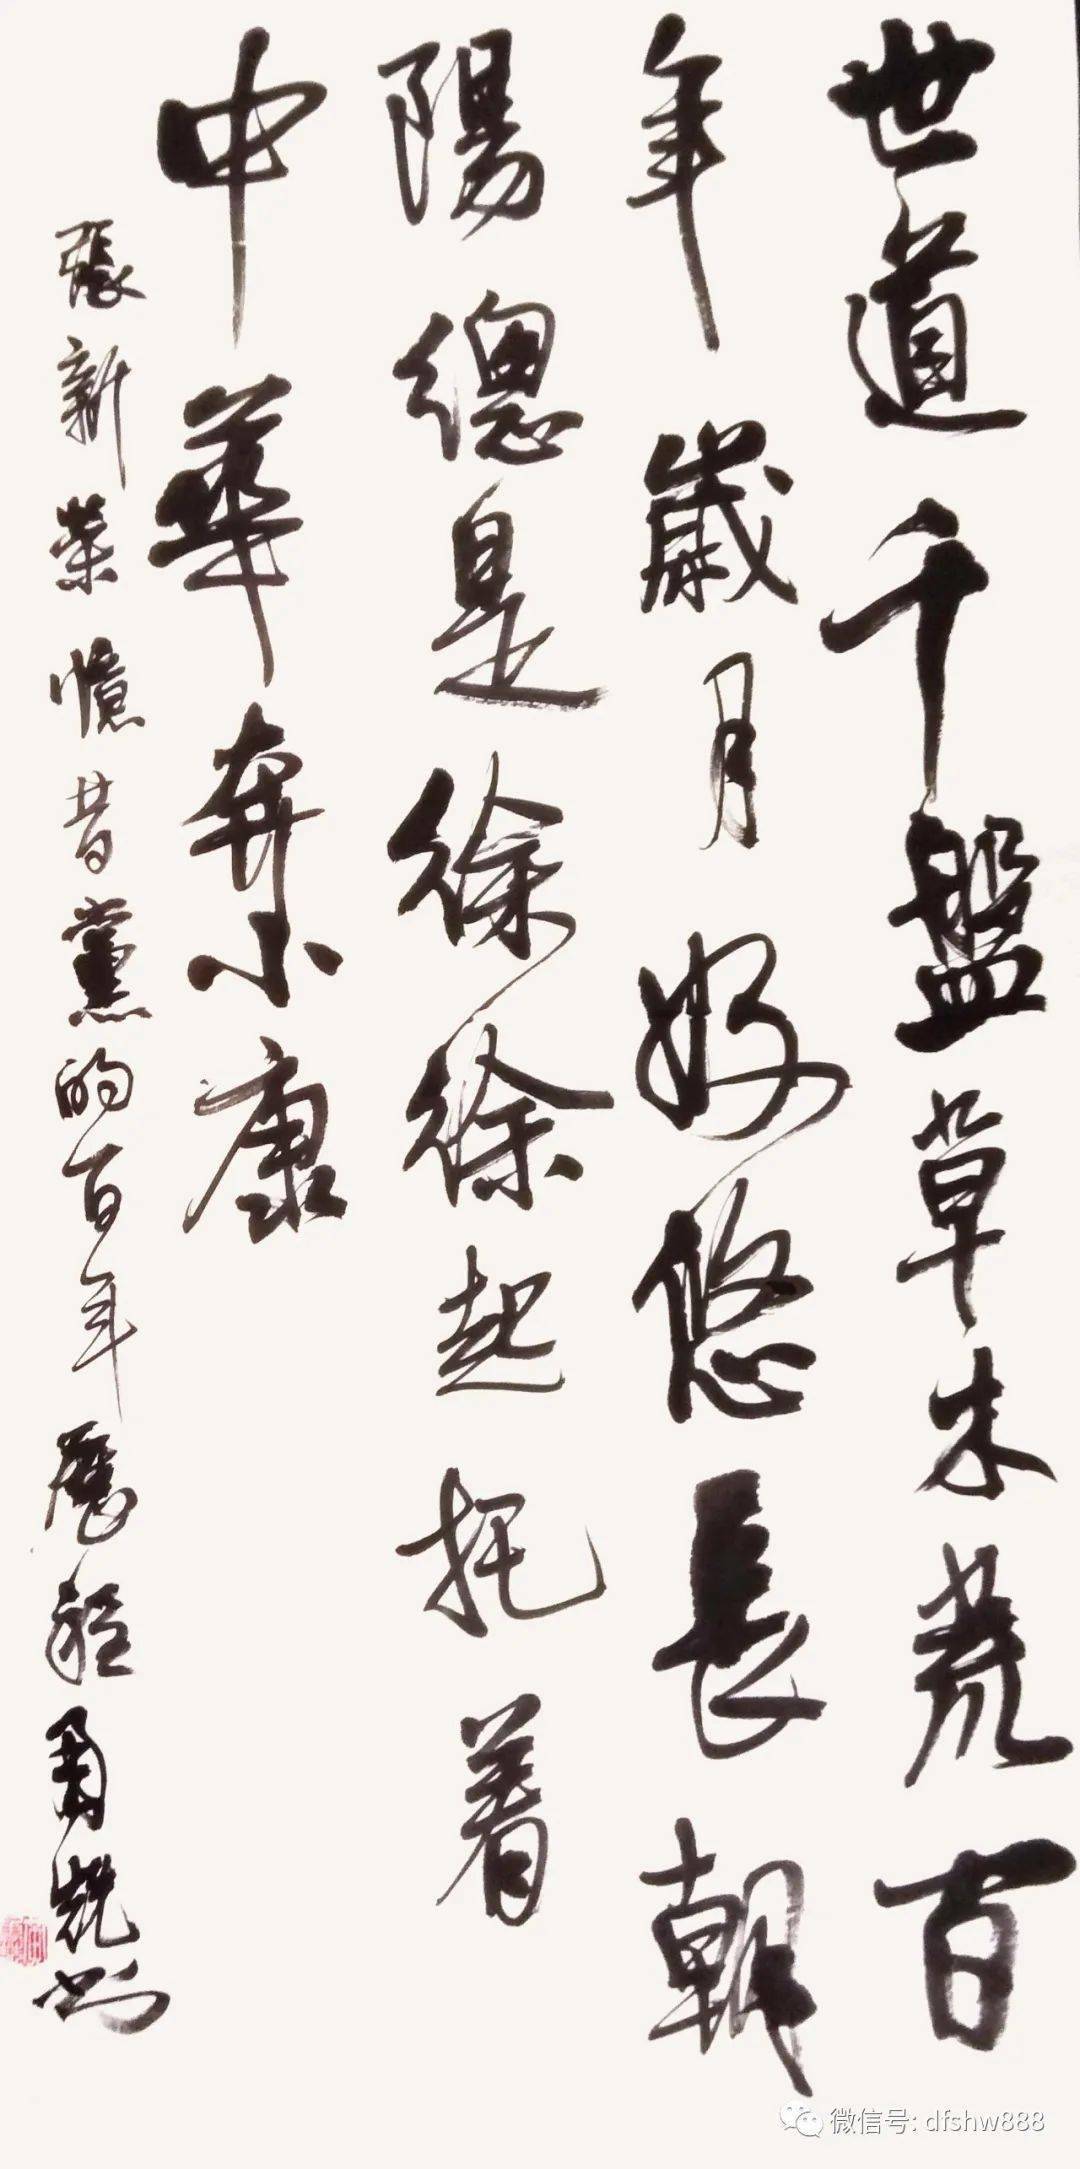 世道千盤草木荒百
年歲月好悠長朝
陽總是徐徐起托着
中華奔小康
張新榮憶昔黨的百年歷程勇書
微信号: dfshw888